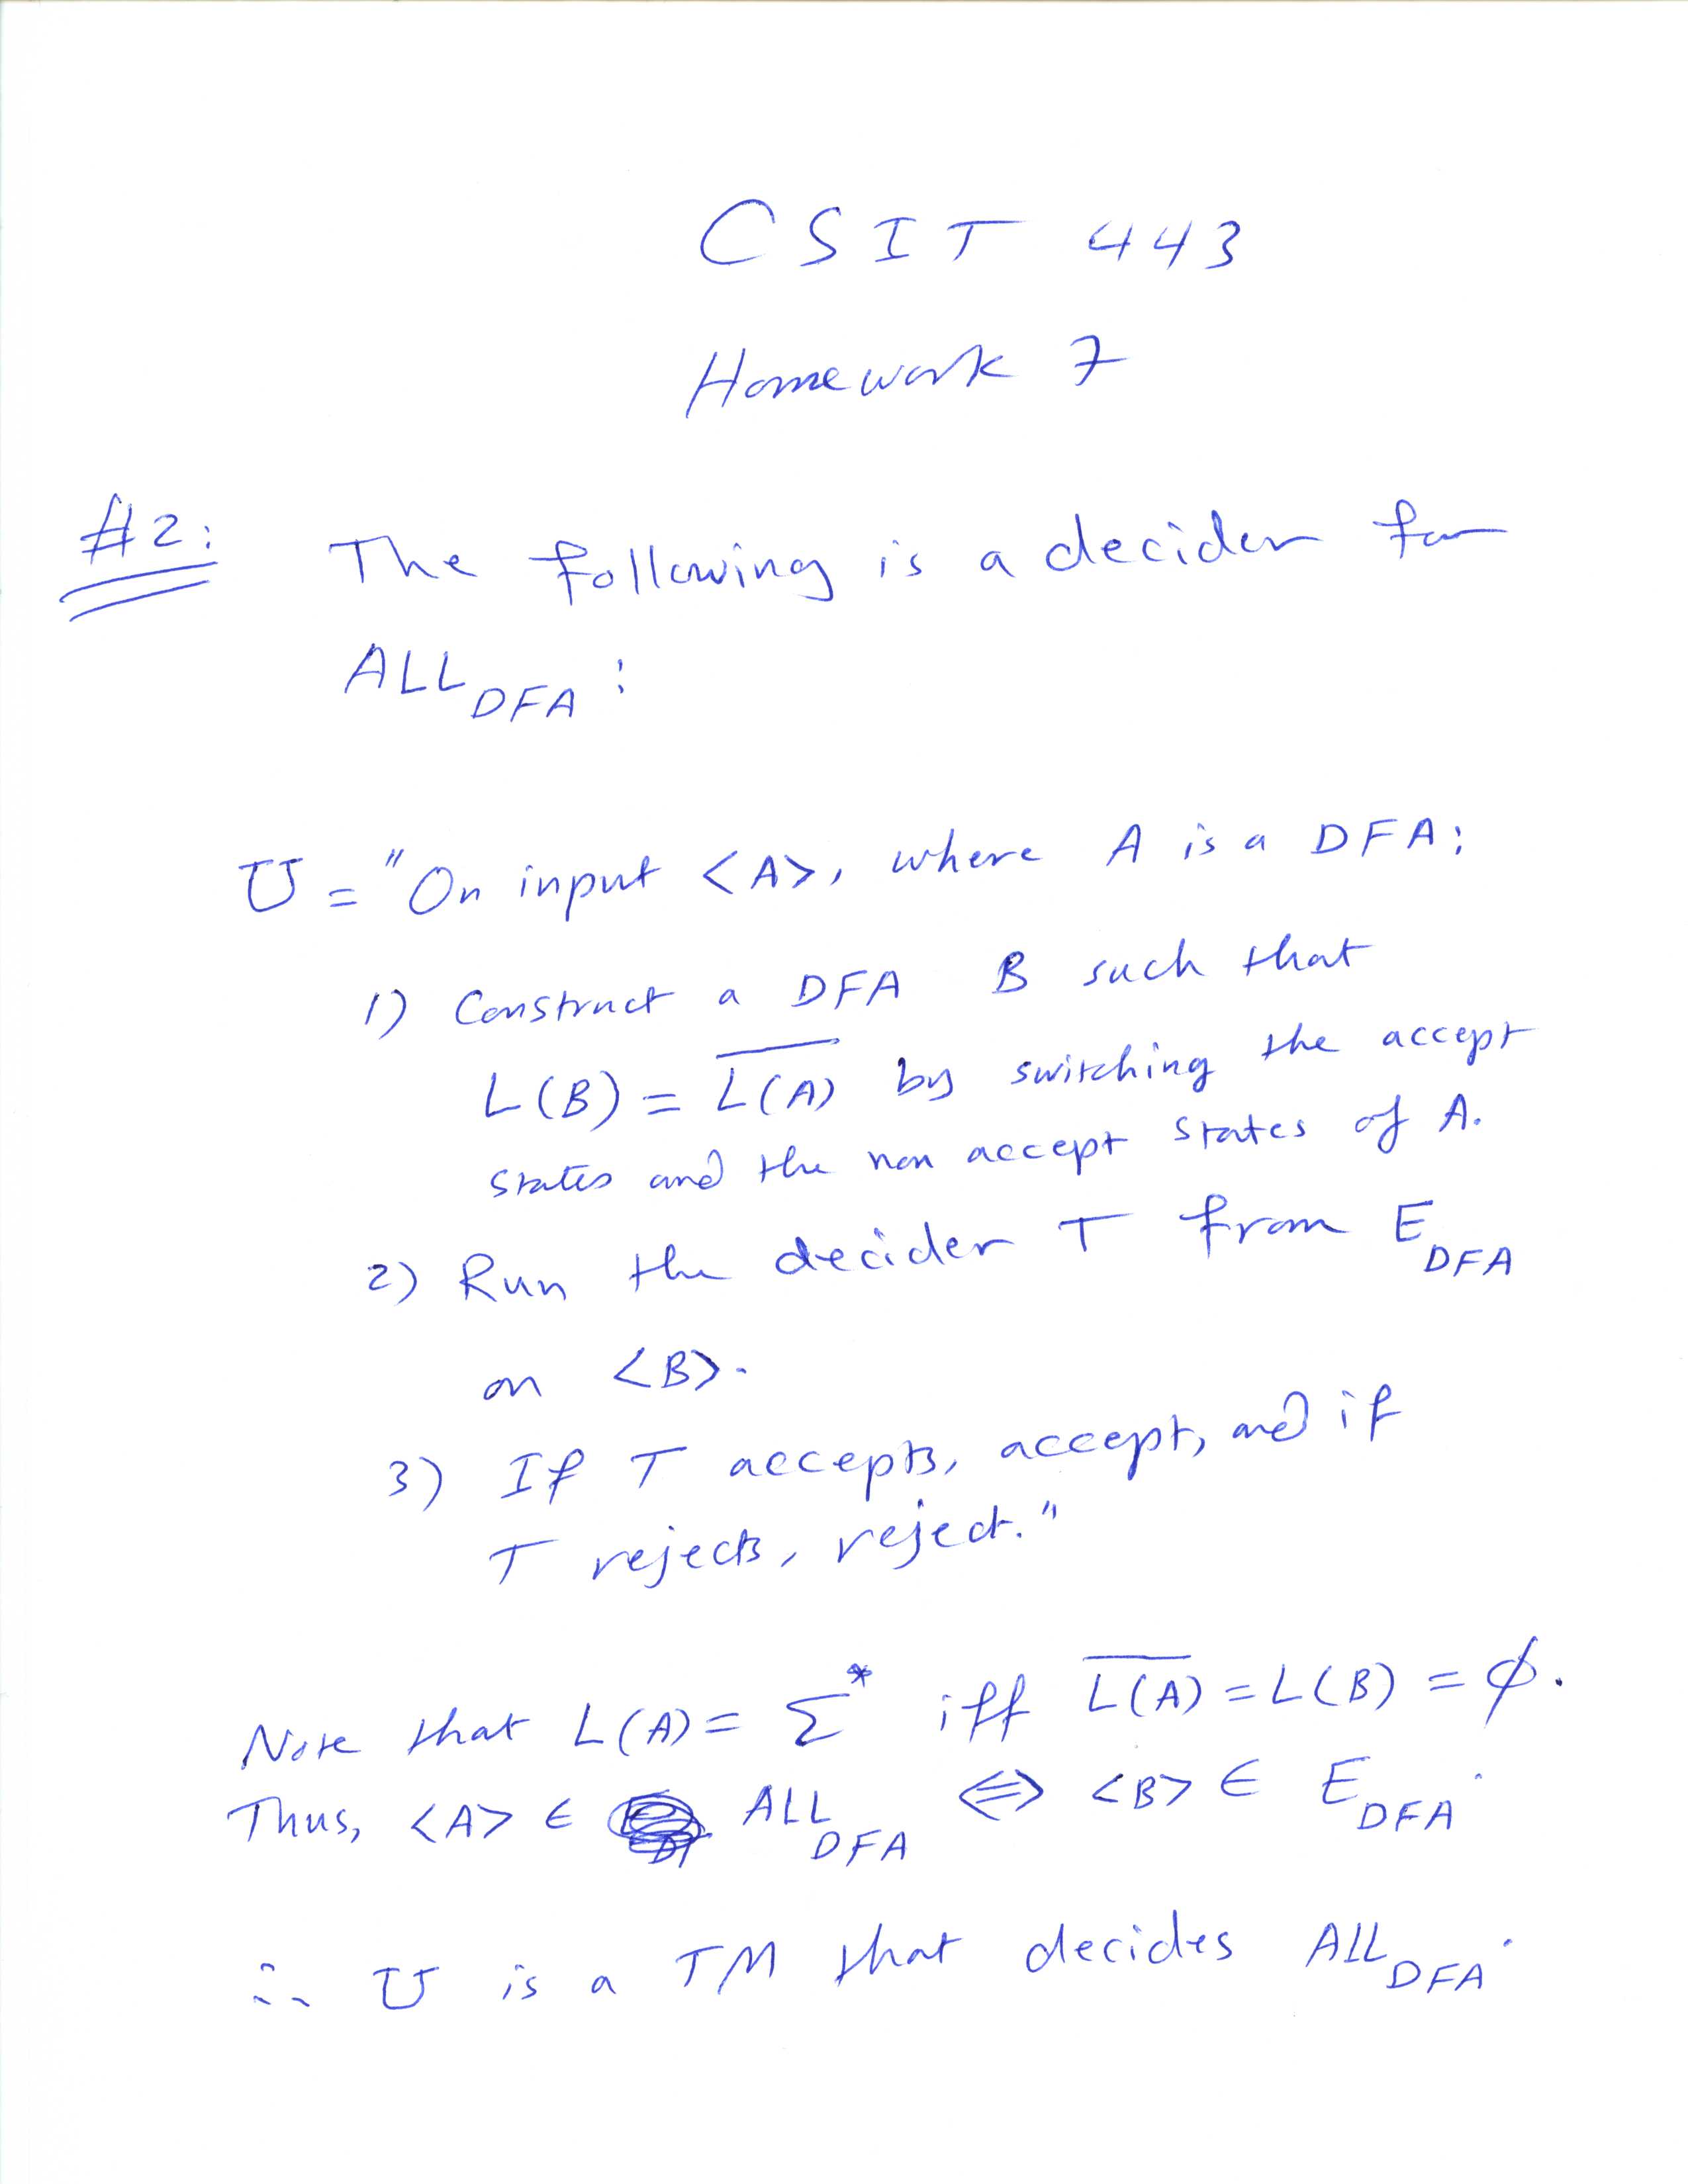 CSIT 443
Homework 7
#2: The following is a decider for
ALL_DFA:
U = "On input <A>, where A is a DFA:
1) Construct a DFA B such that
L(B) = \overline{L(A)} by switching the accept
states and the non accept states of A.
2) Run the decider T from E_DFA
on <B>.
3) If T accepts, accept, and if
T rejects, reject."
Note that L(A) = Σ* iff \overline{L(A)} = L(B) = ∅.
Thus, <A> ∈ ALL_DFA ⇔ <B> ∈ E_DFA.
∴ U is a TM that decides ALL_DFA.